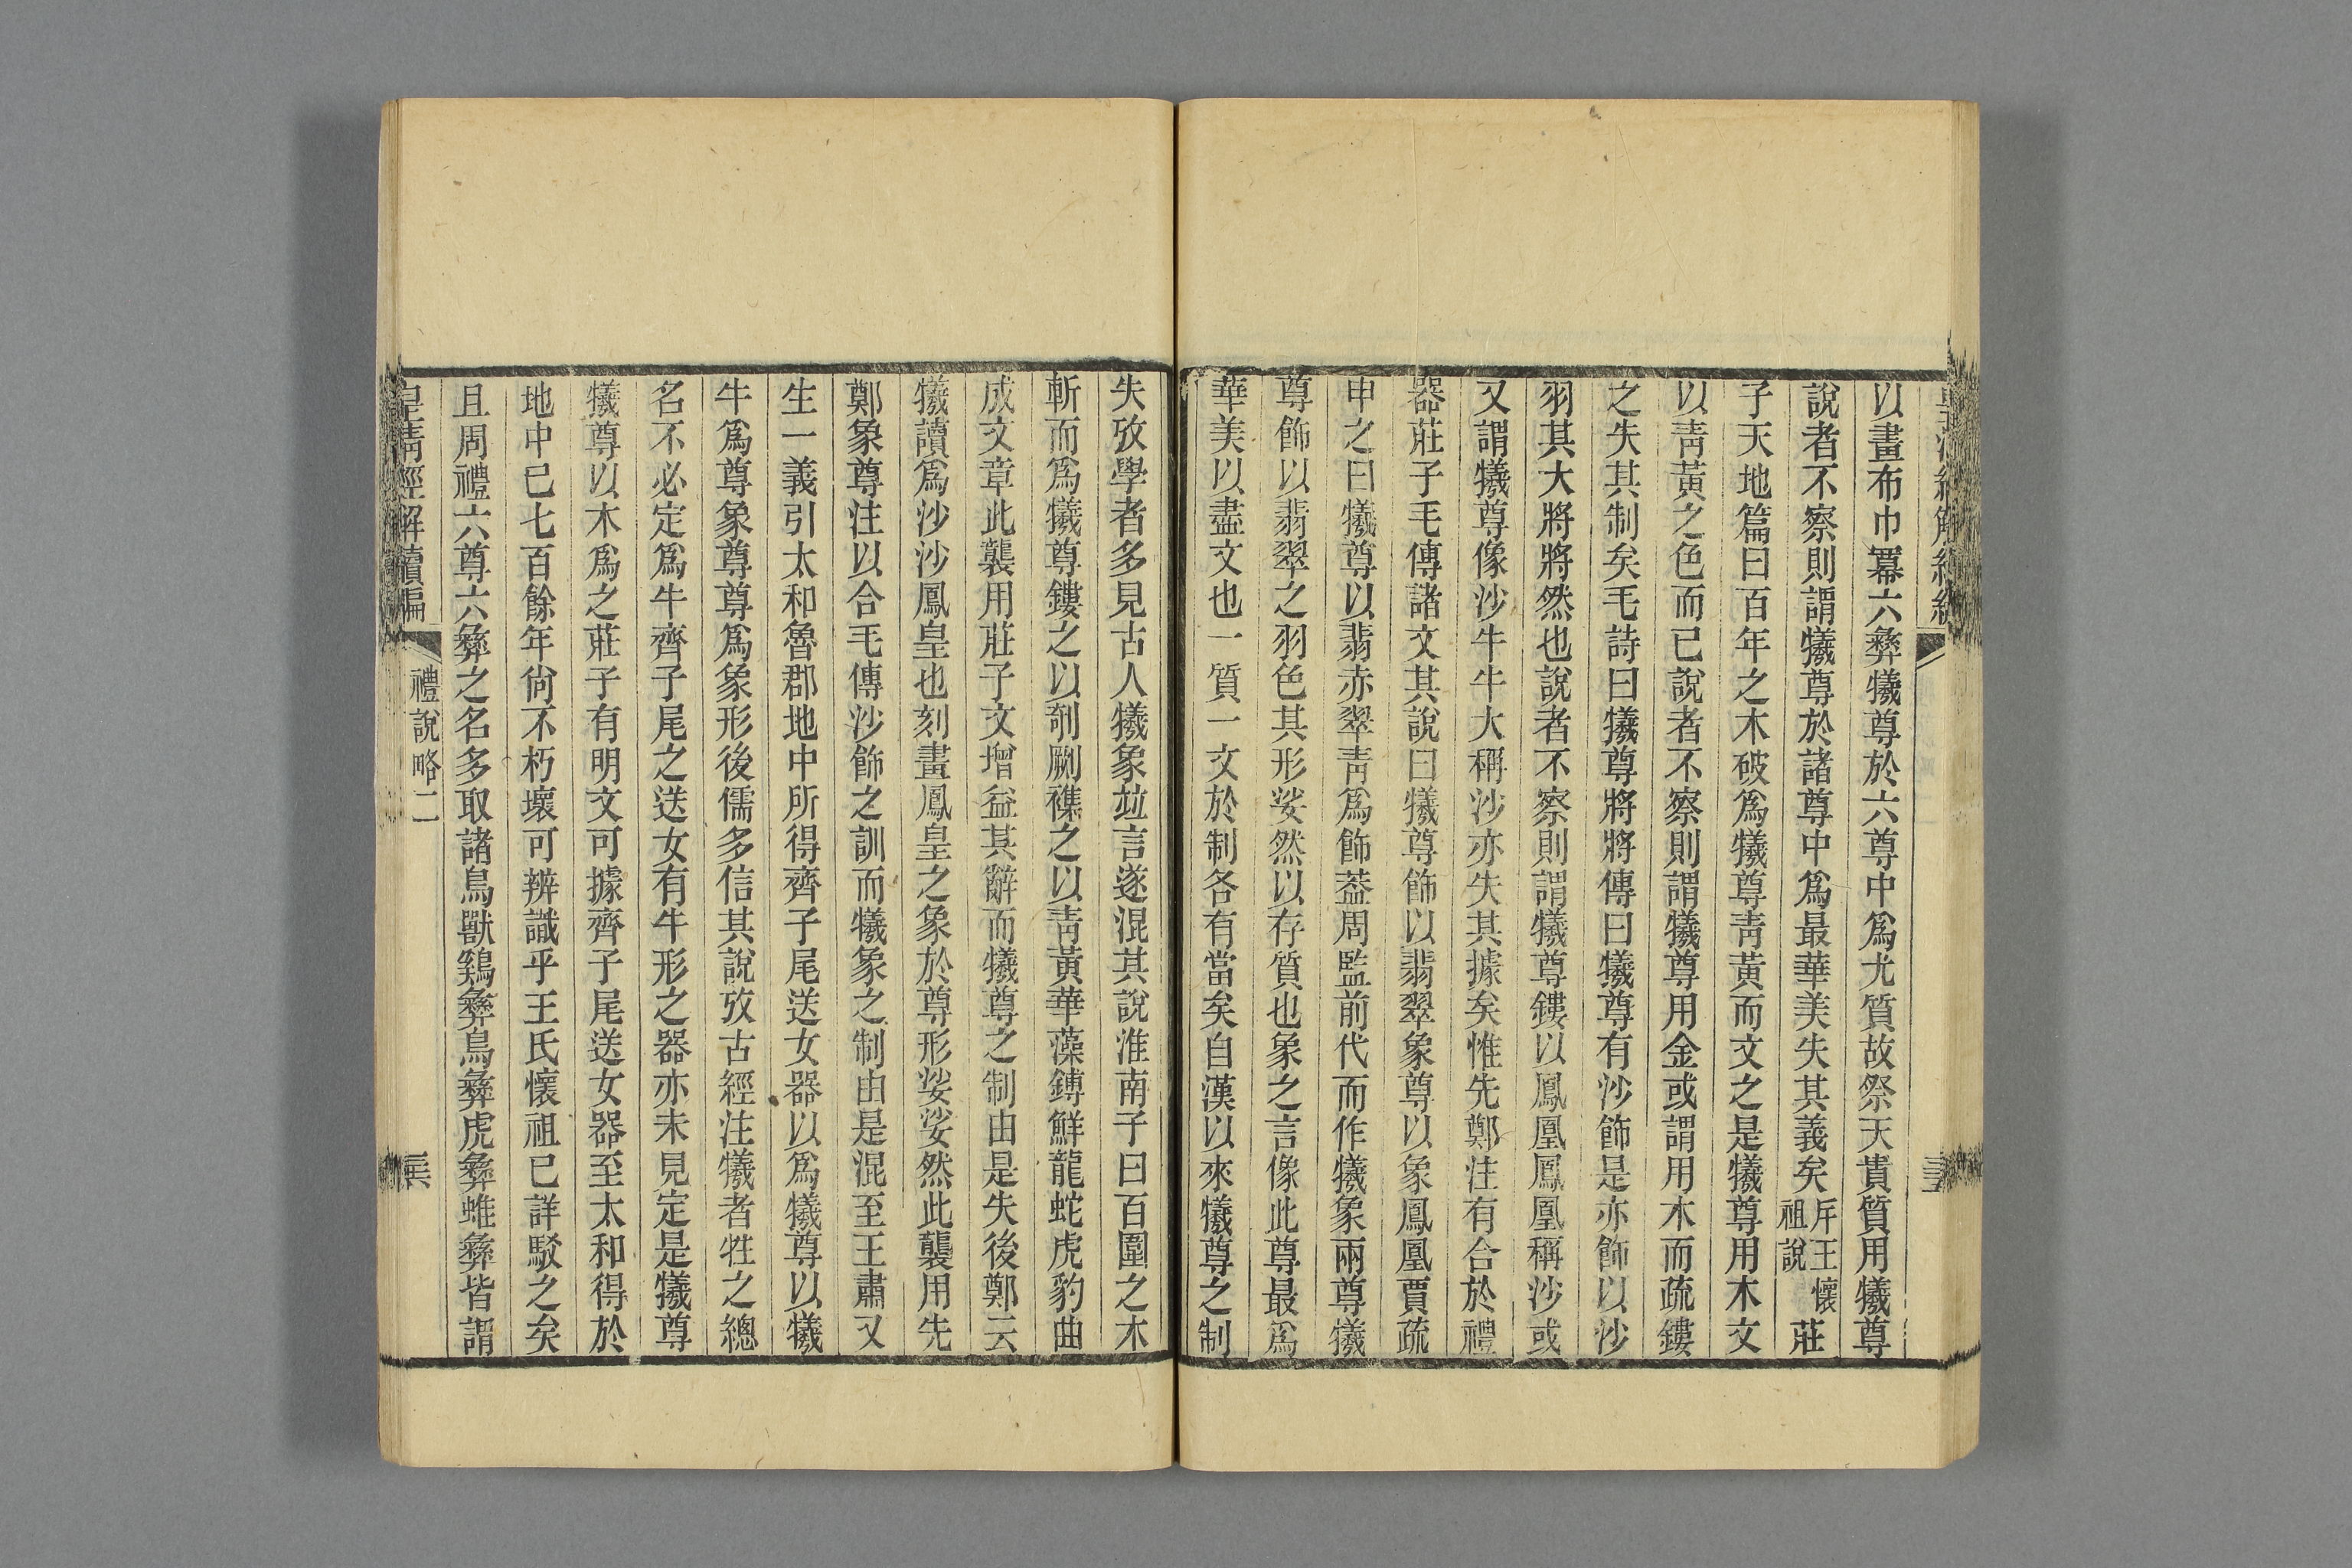 以畫布巾冪六彝犧尊於六尊中爲尤質故祭天貴質用犧尊
說者不察則謂犧尊於諸尊中爲最華美失其義矣斥王懷祖說莊
子天地篇曰百年之木破爲犧尊靑黃而文之是犧尊用木文
以靑黃之色而已說者不察則謂犧尊用金或謂用木而疏鏤
之失其制矣毛詩曰犧尊將將傳曰犧尊有沙飾是亦飾以沙
羽其大將將然也說者不察則謂犧尊鏤以鳳凰鳳凰稱沙或
又謂犧尊像沙牛牛大稱沙亦失其據矣惟先鄭注有合於禮
器莊子毛傳諸文其說曰犧尊飾以翡翠象尊以象鳳凰賈疏
申之曰犧尊以翡赤翠靑爲飾葢周監前代而作犧象兩尊犧
尊飾以翡翠之羽色其形娑然以存質也象之言像此尊最爲
華美以盡文也一質一文於制各有當矣自漢以來犧尊之制
失攷學者多見古人犧象竝言遂混其說淮南子曰百圍之木
斬而爲犧尊鏤之以剞劂襍之以靑黃華藻鎛鮮龍蛇虎豹曲
成文章此襲用莊子文增益其辭而犧尊之制由是失後鄭云
犧讀爲沙沙鳳皇也刻畫鳳皇之象於尊形娑娑然此襲用先
鄭象尊注以合毛傳沙飾之訓而犧象之制由是混至王肅又
生一義引太和魯郡地中所得齊子尾送女器以爲犧尊以犧
牛爲尊象尊尊爲象形後儒多信其說攷古經注犧者牲之總
名不必定爲牛齊子尾之送女有牛形之器亦未見定是犧尊
犧尊以木爲之莊子有明文可據齊子尾送女器至太和得於
地中已七百餘年尙不朽壞可辨識乎王氏懷祖已詳駁之矣
且周禮六尊六彝之名多取諸鳥獸鷄彝鳥彝虎彝蜼彝皆謂
皇淸經解續編
禮說略二